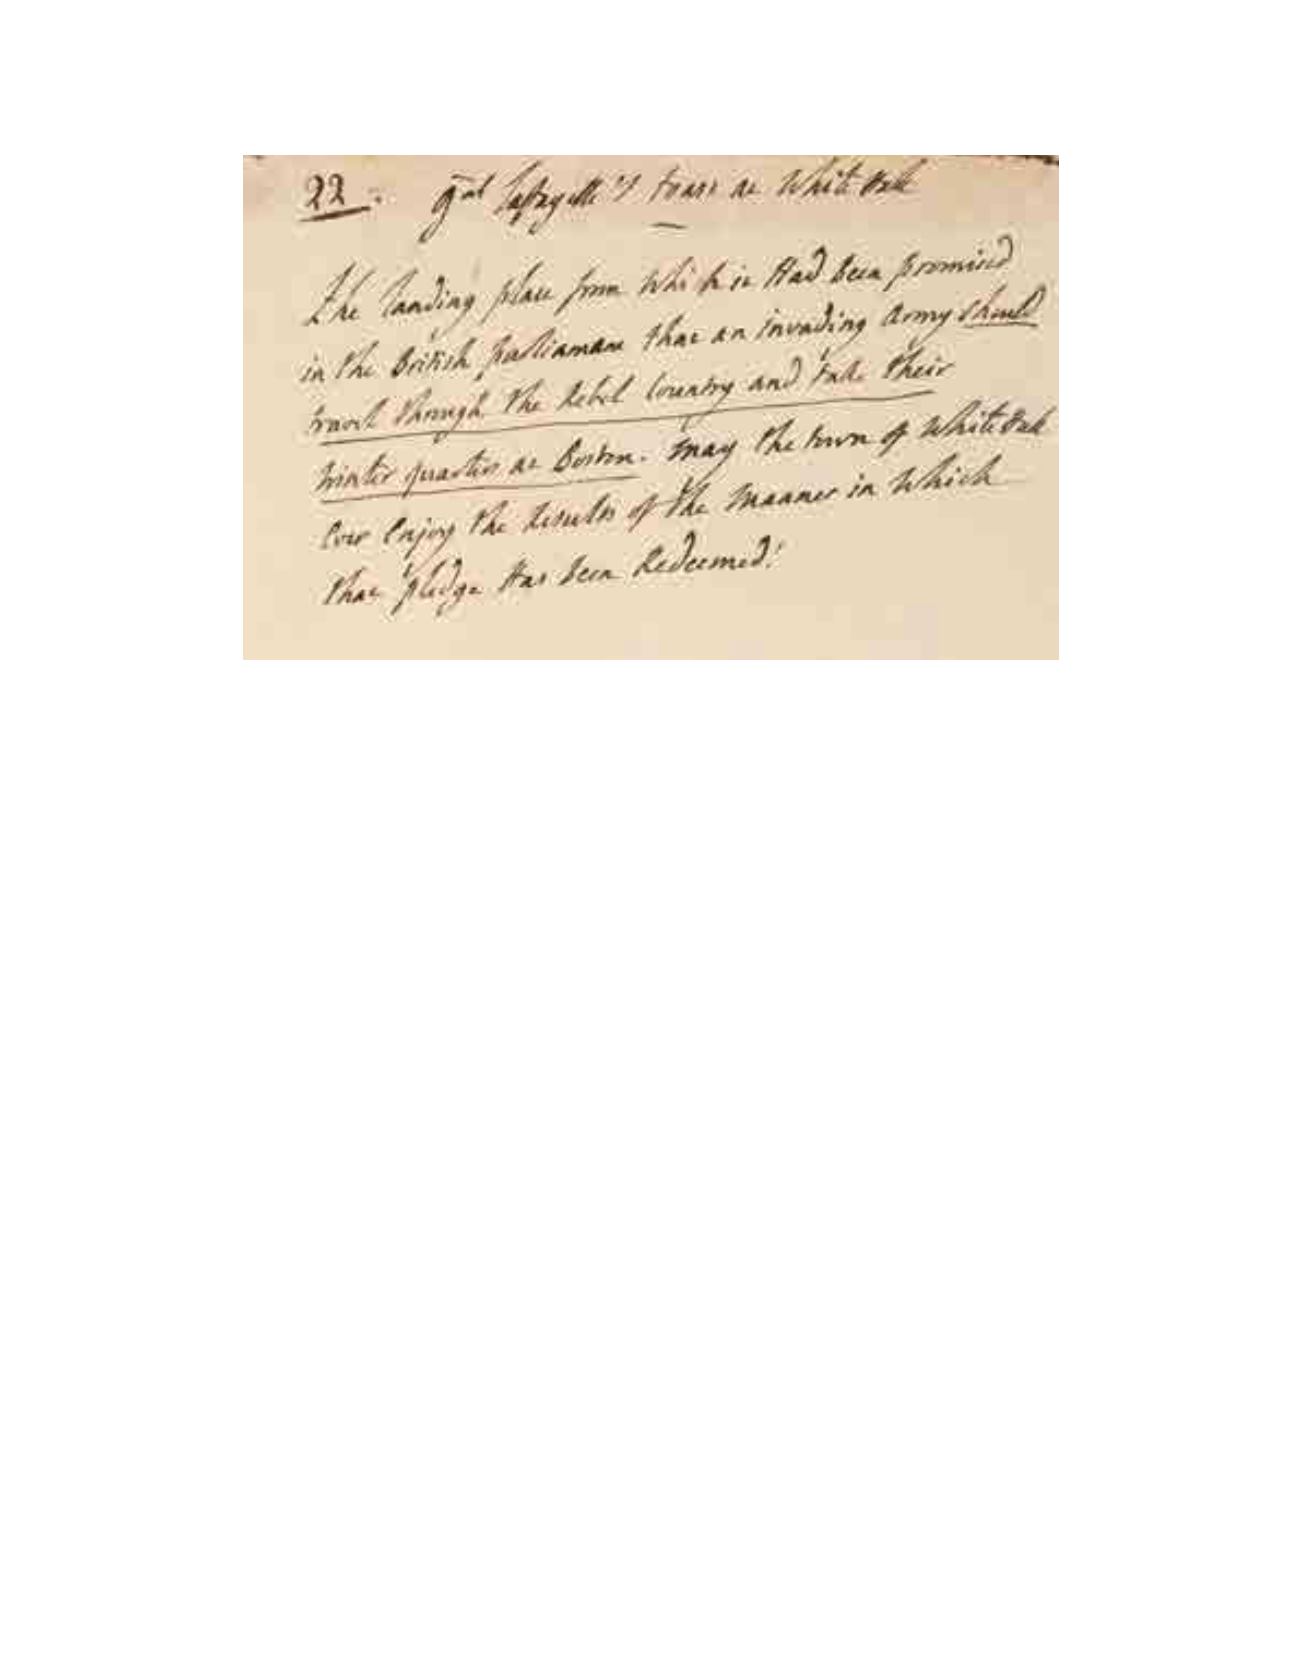 22 - Gnal Lafayette's toast at White Hall
The landing place from which it Had been promised
in the British parliament that an invading army should
travel through the Rebel Country and take their
winter quarters at Boston. may the town of White Hall
Ever Enjoy the Results of the Manner in Which
that pledge Has been Redeemed!